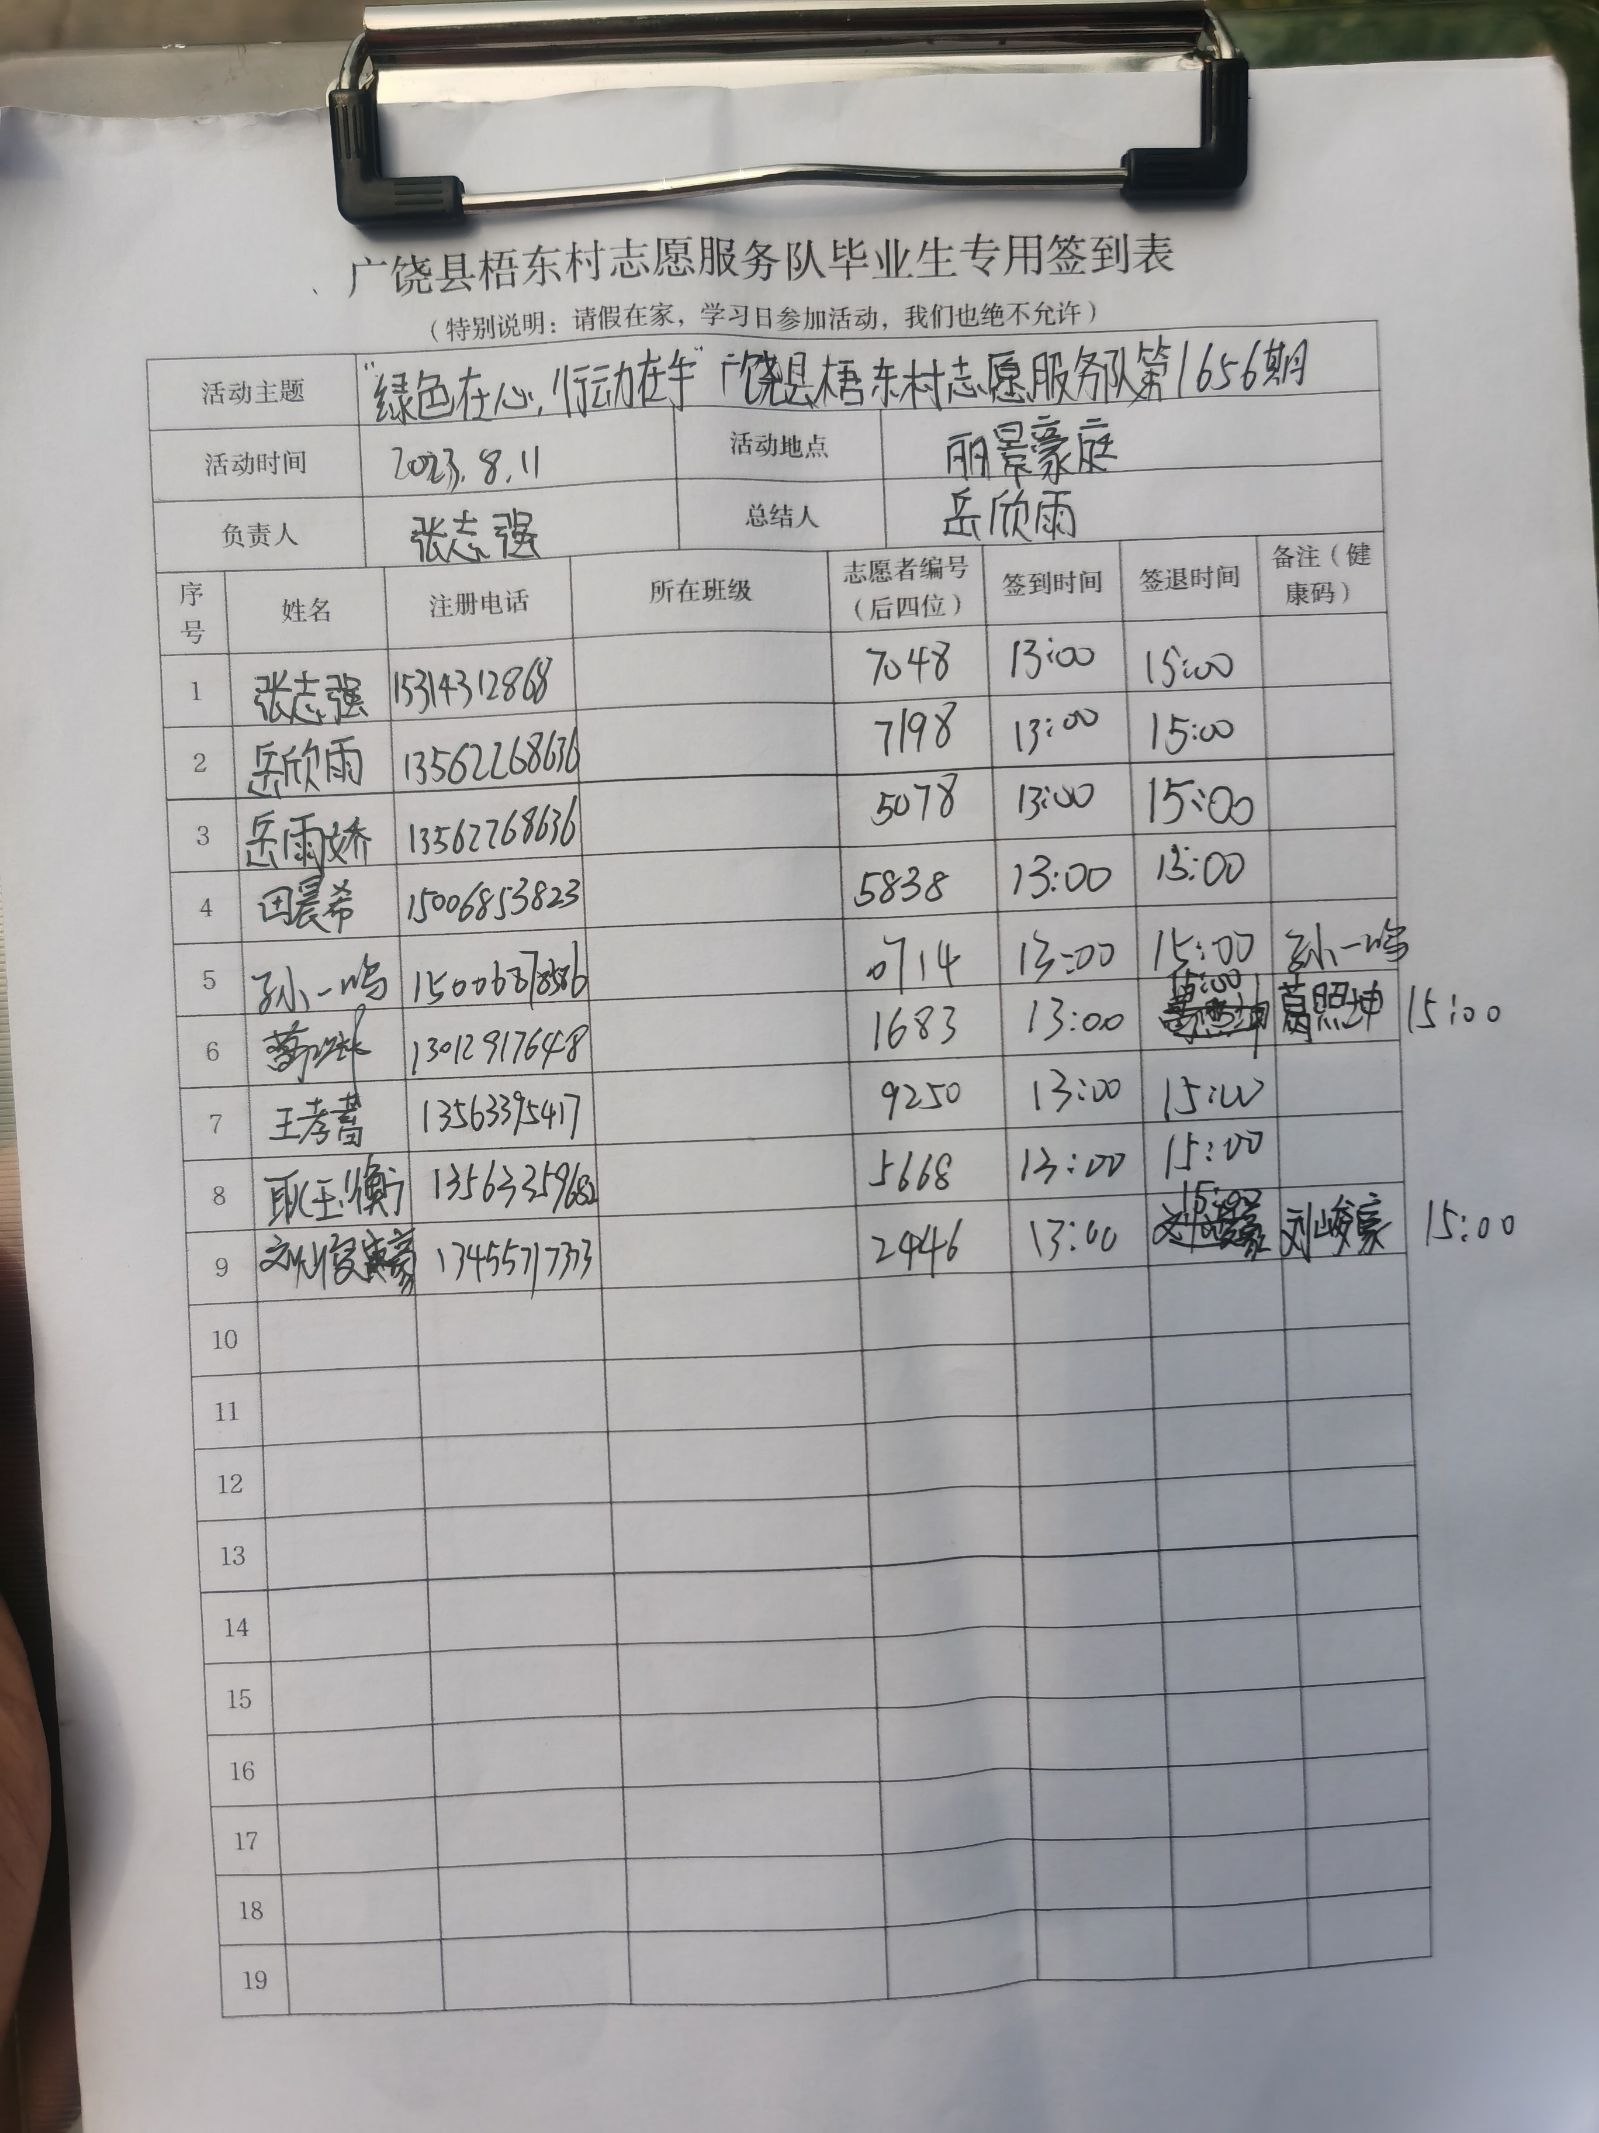 广饶县梧东村志愿服务队毕业生专用签到表
（特别说明：请假在家，学习日参加活动，我们也绝不允许）
活动主题 “绿色在心，行动在车”广饶县梧东村志愿服务队第1656期
活动时间 2023.8.11 活动地点 丽景豪庭
负责人 张志强 总结人 岳欣雨
序号 姓名 注册电话 所在班级 志愿者编号（后四位） 签到时间 签退时间 备注（健康码）
1 张志强 15314312868 7048 13:00 15:00
2 岳欣雨 13562268636 7198 13:00 15:00
3 岳雨娇 13562268636 5078 13:00 15:00
4 田晨希 15006853823 5838 13:00 15:00
5 孙一鸣 0714 13:00 15:00 孙一鸣
6 13012917648 1683 13:00 15:00 葛照坤 15:00
7 王孝蕾 13563395417 9250 13:00 15:00
8 耿玉衡 13563359682 5668 13:00 15:00
9 刘峻豪 13455717373 2446 13:00 15:00 刘峻豪 15:00
10
11
12
13
14
15
16
17
18
19